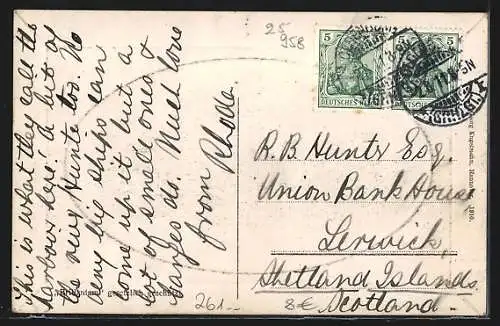 This is what they call the
harbour here. A bit of
the new Hunte too. No
very big ships can
come up it but a
lot of small ones &
barges do. Much love
from Rhoda.
25
958
5
5
DEUTSCHES REICH
R. B. Hunter Esq.
Union Bank House
Lerwick
Shetland Islands
Scotland.
gesetzlich geschützt
261.-
8€